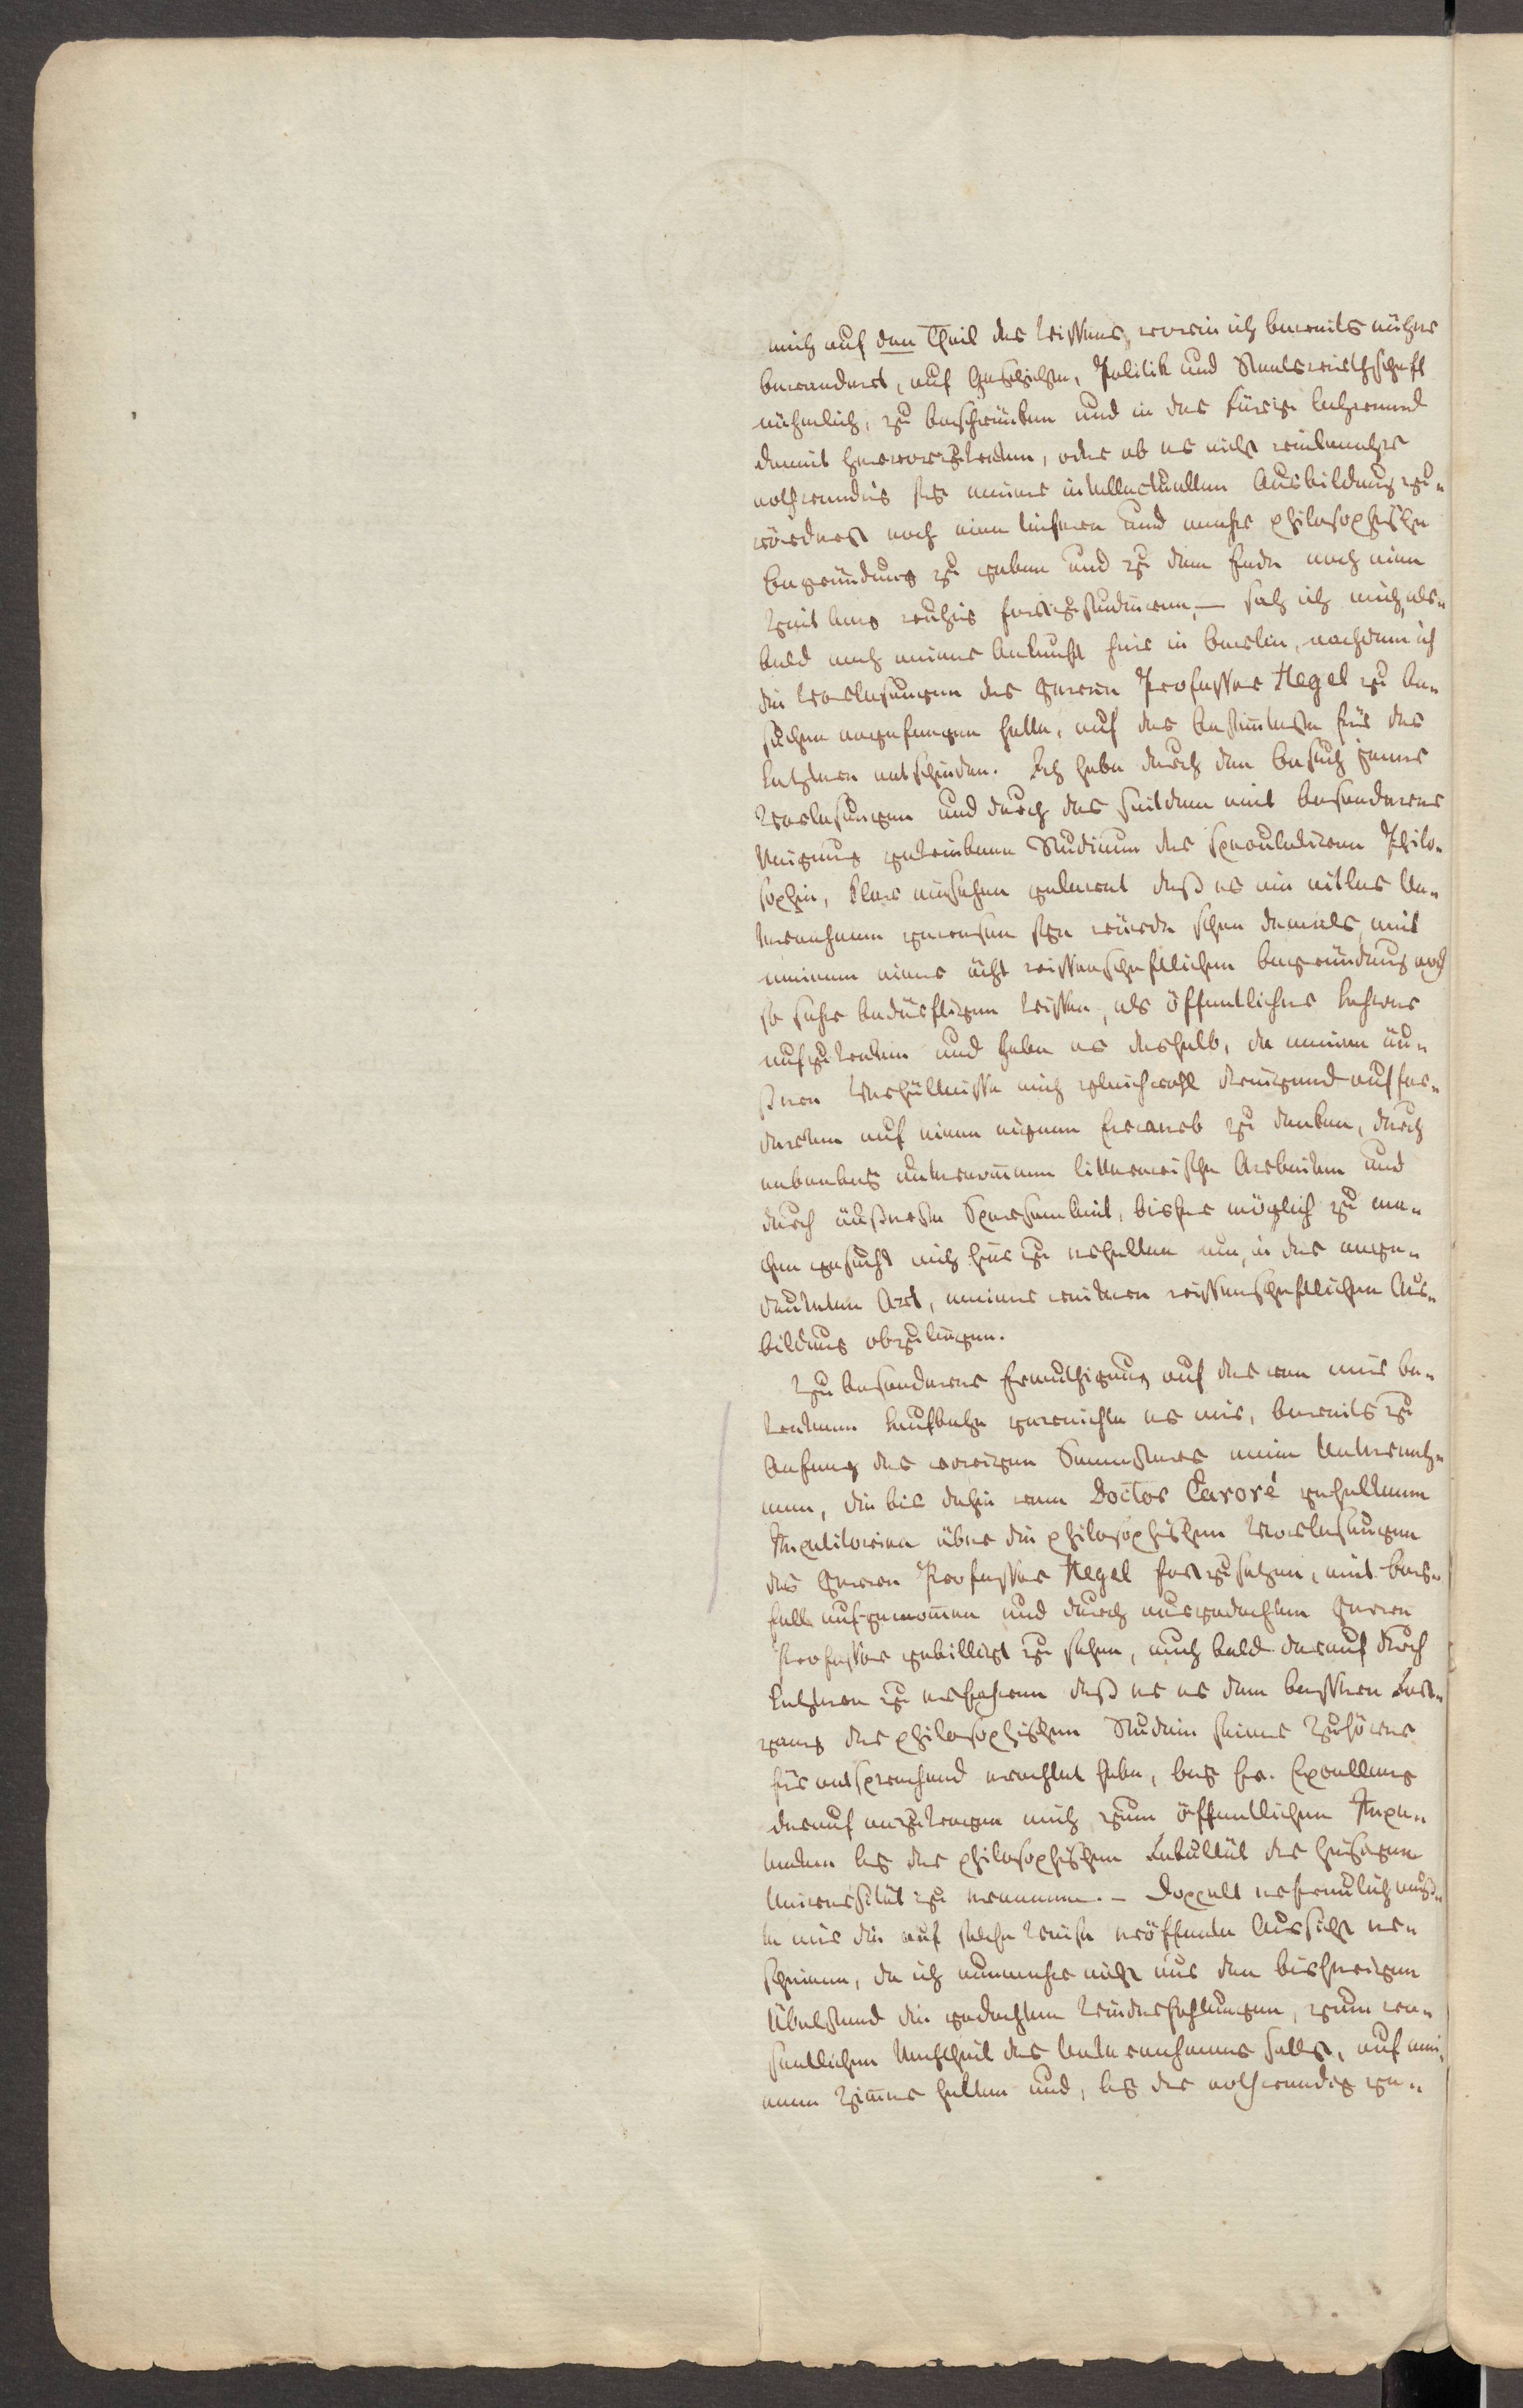 mich auf den Theil des Wissens, worin ich bereits näher
bewandert, auf Geschichte, Politik und Staatswirthschaft
nähmlich, zu beschränken und in der Kürze lehrend
damit hervorzutreten, oder ob es nicht vielmehr
nothwendig sey meiner intellectuellen Ausbildung zu„
vörderst noch eine tiefere und mehr philosophische
Begründung zu geben und zu dem Ende noch eine
Zeit lang ruhig fortzustudieren, — sah ich mich, als„
bald nach meiner Ankunft hier in Berlin, nachdem ich
die Vorlesungen des Herrn Professor Hegel zu be„
suchen angefangen hatte, auf das Bestimteste für das
Letztere entschieden. Ich habe durch den Besuch jener
Vorlesungen und durch das seitdem mit besonderer
Neigung getriebene Studium der speculativen Philo„
sophie, klar einsehen gelernt daß es ein eitles Un„
ternehmen gewesen seyn würde schon damals, mit
meinem einer ächt wissenschaftlichen Begründung noch
so sehr bedürftigen Wissen, als öffentlicher Lehrer
aufzutreten und habe es deshalb, da meine äu„
ßeren Verhältnisse mich gleichwohl dringend auffor„
derten auf einen eignen Erwerb zu denken, durch
nebenbey unternommene litterarische Arbeiten und
durch äußerste Sparsamkeit, bisher möglich zu ma„
chen gesucht mich hier zu erhalten um, in der ange„
deuteten Art, meiner weiteren wissenschaftlichen Aus„
bildung obzuliegen.
Zu besonderer Ermuthigung auf der von mir be„
tretenen Laufbahn gereichte es mir, bereits zu
Anfang des vorigen Semesters mein Unterneh„
men, die bis dahin vom Doctor Carové gehaltenen
Repetitorien über die philosophischen Vorlesungen
des Herrn Professor Hegel fortzusetzen, mit Bey„
fall aufgenommen und durch ausgedachten Herrn
Professor gebilligt zu sehen, auch bald darauf durch
Letzteren zu erfahren daß er es dem besseren Fort„
gang des philosophischen Studiu seiner Zuhörer
für entsprechend erachtet habe, bey Ew. Excellenz
darauf anzutragen mich zum öffentlichen Repe„
tenten bey der philosophischen Fakultät der hiesigen
Universität zu ernennen. — Doppelt erfreulich muß„
te mir die auf solche Weise eröffnete Aussicht er„
scheinen, da ich nunmehr nicht nur den bisherigen
Übelstand die gedachten Wiederhohlungen, zum we„
sentlichen Nachtheil des Unternehmens selbst, auf mei„
nem Zimmer halten und, bey der nothwendig ge„